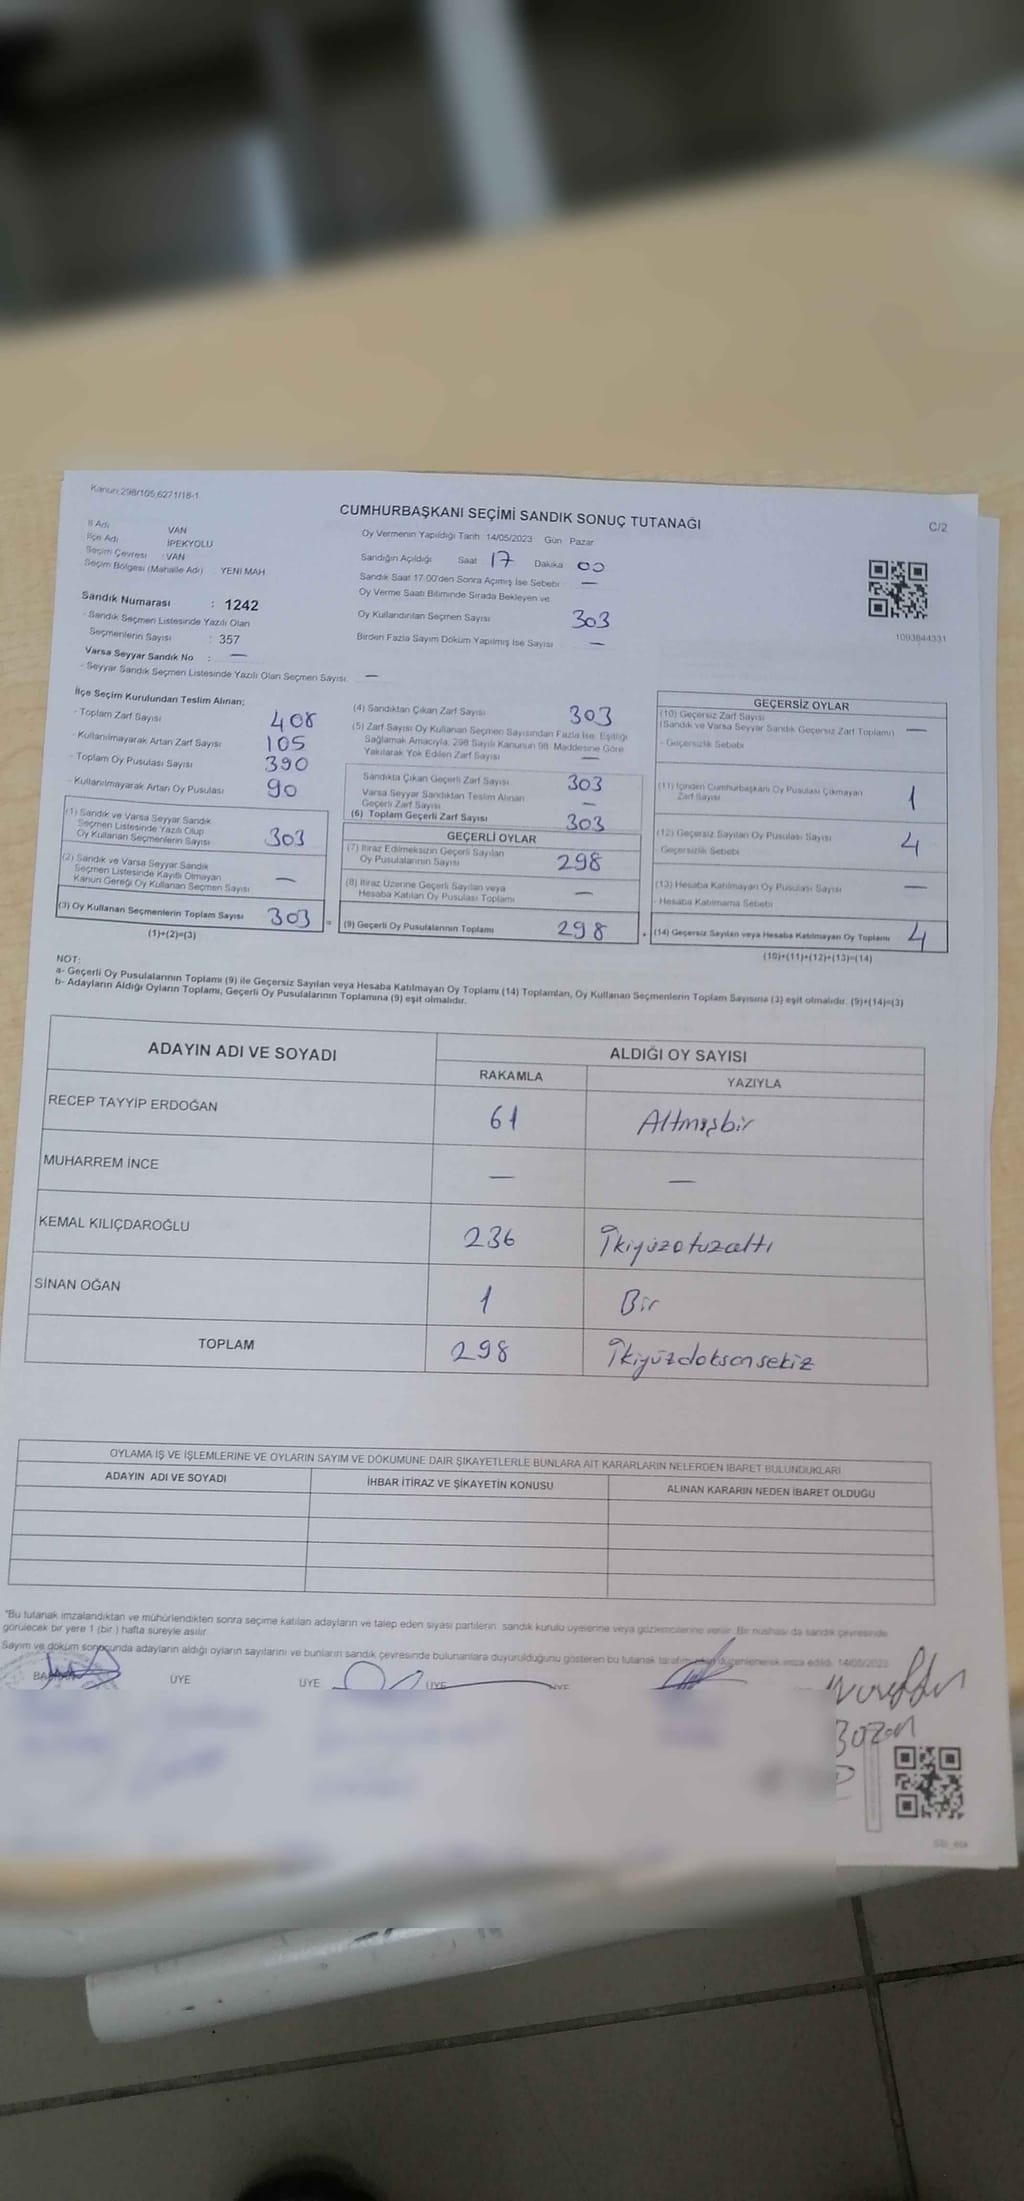 Kanun:298/105,6271/18-1
CUMHURBAŞKANI SEÇİMİ SANDIK SONUÇ TUTANAĞI
C/2
İl Adı VAN
İlçe Adı İPEKYOLU
Seçim Çevresi : VAN
Seçim Bölgesi (Mahalle Adı) YENİ MAH
Oy Vermenin Yapıldığı Tarih 14/05/2023 Gün Pazar
Sandığın Açıldığı Saat 17 Dakika 00
Sandık Saat 17:00'den Sonra Açımış İse Sebebi —
Oy Verme Saati Bitiminde Sırada Bekleyen ve
Oy Kullandırılan Seçmen Sayısı 303
Birden Fazla Sayım Döküm Yapılmış İse Sayısı —
1093844331
Sandık Numarası : 1242
- Sandık Seçmen Listesinde Yazılı Olan
Seçmenlerin Sayısı : 357
Varsa Seyyar Sandık No : —
- Seyyar Sandık Seçmen Listesinde Yazılı Olan Seçmen Sayısı: —
İlçe Seçim Kurulundan Teslim Alınan;
- Toplam Zarf Sayısı 408
- Kullanılmayarak Artan Zarf Sayısı 105
- Toplam Oy Pusulası Sayısı 390
- Kullanılmayarak Artan Oy Pusulası 90
(1) Sandık ve Varsa Seyyar Sandık
Seçmen Listesinde Yazılı Olup
Oy Kullanan Seçmenlerin Sayısı 303
(2) Sandık ve Varsa Seyyar Sandık
Seçmen Listesinde Kayıtlı Olmayan
Kanun Gereği Oy Kullanan Seçmen Sayısı —
(3) Oy Kullanan Seçmenlerin Toplam Sayısı 303 =
(1)+(2)=(3)
(4) Sandıktan Çıkan Zarf Sayısı 303
(5) Zarf Sayısı Oy Kullanan Seçmen Sayısından Fazla İse, Eşitliği
Sağlamak Amacıyla, 298 Sayılı Kanunun 98. Maddesine Göre
Yakılarak Yok Edilen Zarf Sayısı —
Sandıkta Çıkan Geçerli Zarf Sayısı 303
Varsa Seyyar Sandıktan Teslim Alınan
Geçerli Zarf Sayısı —
(6) Toplam Geçerli Zarf Sayısı 303
GEÇERLİ OYLAR
(7) İtiraz Edilmeksizin Geçerli Sayılan
Oy Pusulalarının Sayısı 298
(8) İtiraz Üzerine Geçerli Sayılan veya
Hesaba Katılan Oy Pusulası Toplamı —
(9) Geçerli Oy Pusulalarının Toplamı 298 +
GEÇERSİZ OYLAR
(10) Geçersiz Zarf Sayısı
(Sandık ve Varsa Seyyar Sandık Geçersiz Zarf Toplamı) —
- Geçersizlik Sebebi
(11) İçinden Cumhurbaşkanı Oy Pusulası Çıkmayan
Zarf Sayısı 1
(12) Geçersiz Sayılan Oy Pusulası Sayısı 4
- Geçersizlik Sebebi
(13) Hesaba Katılmayan Oy Pusulası Sayısı —
- Hesaba Katılmama Sebebi
(14) Geçersiz Sayılan veya Hesaba Katılmayan Oy Toplamı 4
(10)+(11)+(12)+(13)=(14)
NOT:
a- Geçerli Oy Pusulalarının Toplamı (9) ile Geçersiz Sayılan veya Hesaba Katılmayan Oy Toplamı (14) Toplamları, Oy Kullanan Seçmenlerin Toplam Sayısına (3) eşit olmalıdır. (9)+(14)=(3)
b- Adayların Aldığı Oyların Toplamı, Geçerli Oy Pusulalarının Toplamına (9) eşit olmalıdır.
ADAYIN ADI VE SOYADI
ALDIĞI OY SAYISI
RAKAMLA YAZIYLA
RECEP TAYYİP ERDOĞAN 61 Altmışbir
MUHARREM İNCE — —
KEMAL KILIÇDAROĞLU 236 İkiyüzotuzaltı
SİNAN OĞAN 1 Bir
TOPLAM 298 İkiyüzdoksansekiz
OYLAMA İŞ VE İŞLEMLERİNE VE OYLARIN SAYIM VE DÖKÜMÜNE DAİR ŞİKAYETLERLE BUNLARA AİT KARARLARIN NELERDEN İBARET BULUNDUKLARI
ADAYIN ADI VE SOYADI İHBAR İTİRAZ VE ŞİKAYETİN KONUSU ALINAN KARARIN NEDEN İBARET OLDUĞU
*Bu tutanak imzalandıktan ve mühürlendikten sonra seçime katılan adayların ve talep eden siyasi partilerin sandık kurulu üyelerine veya gözlemcilerine verilir. Bir nüshası da sandık çevresinde
görülecek bir yere 1 (bir ) hafta süreyle asılır.
Sayım ve döküm sonucunda adayların aldığı oyların sayılarını ve bunların sandık çevresinde bulunanlara duyurulduğunu gösteren bu tutanak tarafımızdan düzenlenerek imza edildi. 14/05/2023
BAŞKAN ÜYE ÜYE ÜYE ÜYE
Bozan